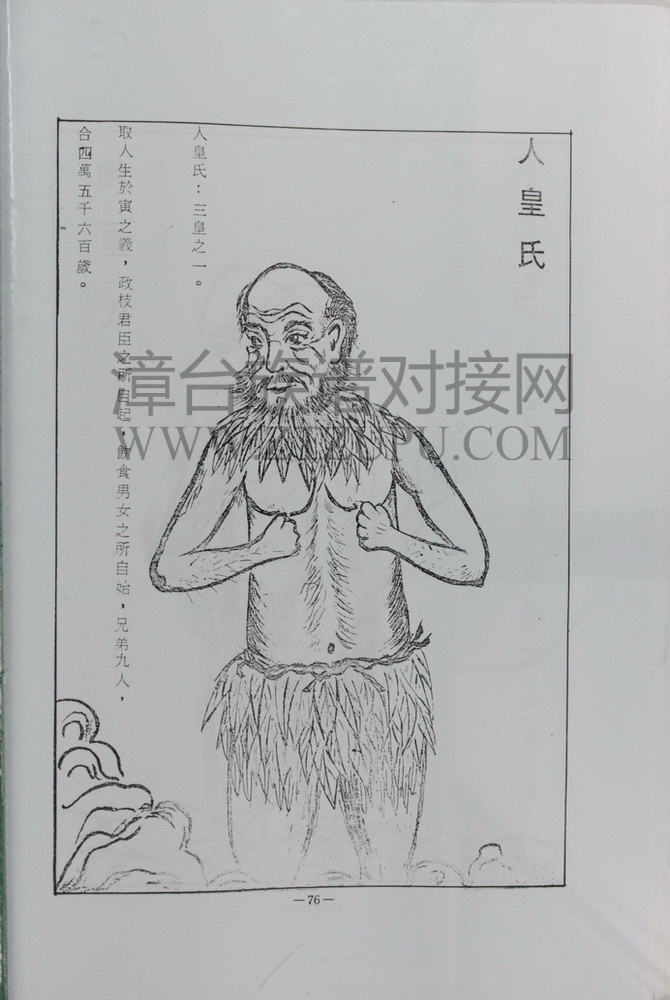 人皇氏
人皇氏：三皇之一。
取人生於寅之義，政枝君臣之所自起，飲食男女之所自始，兄弟九人，
合四萬五千六百歲。
漳台族谱对接网
WWW.ZTZUPU.COM
—76—